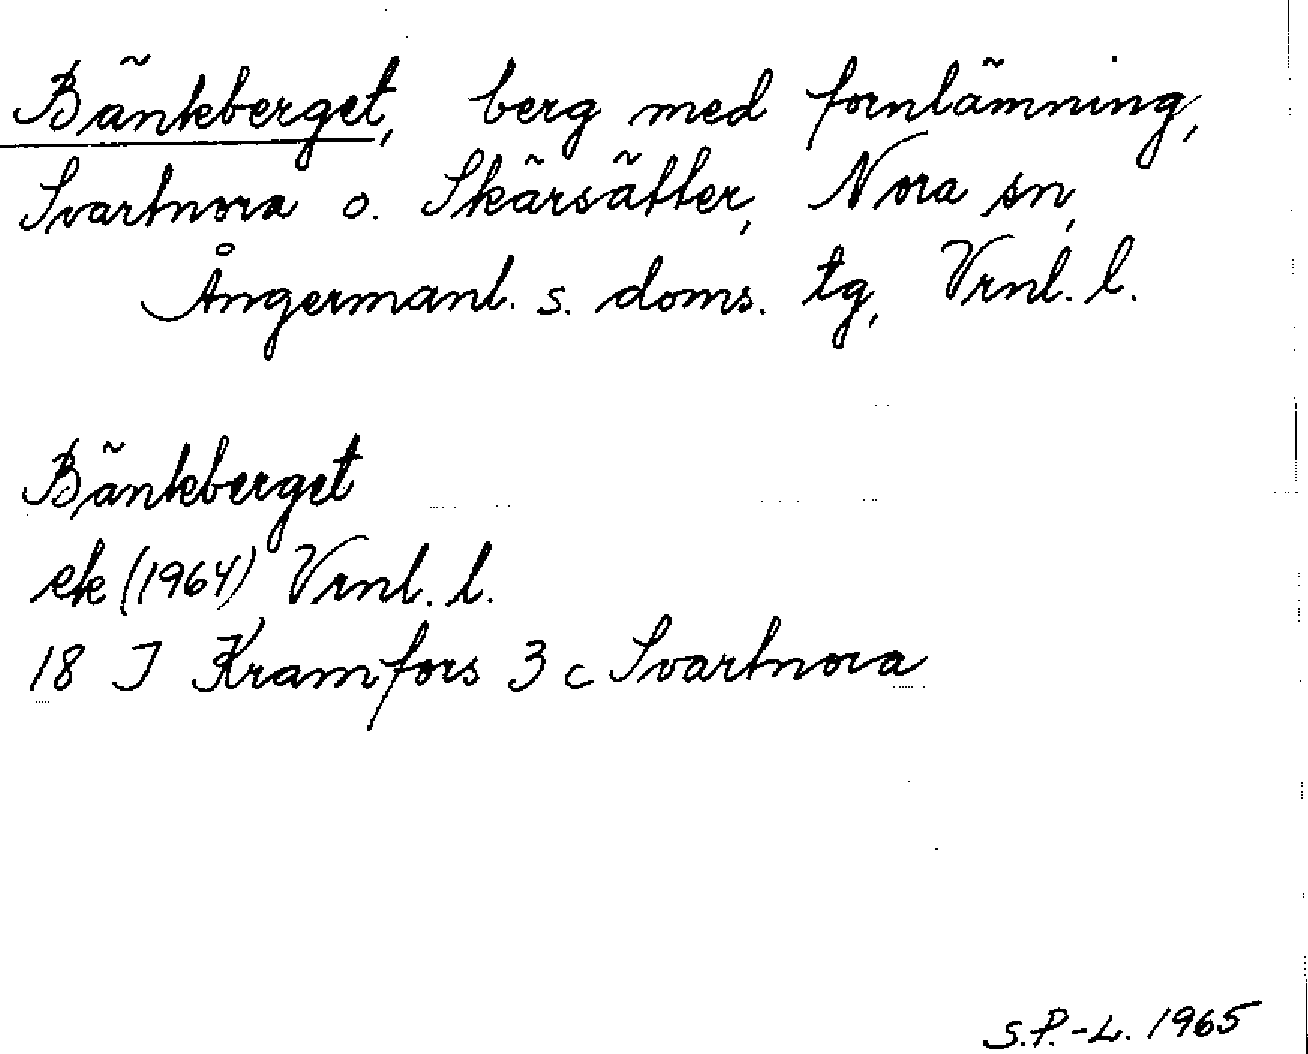 Bänkberget, berg med fornlämning,
Svartnora o. Skärsätter, Nora sn,
Ångermanl. s. doms. tg, Vrnl. l.
Bänkberget
ek (1964) Vrnl. l.
18 J Kramfors 3 c Svartnora
S.P.-L. 1965